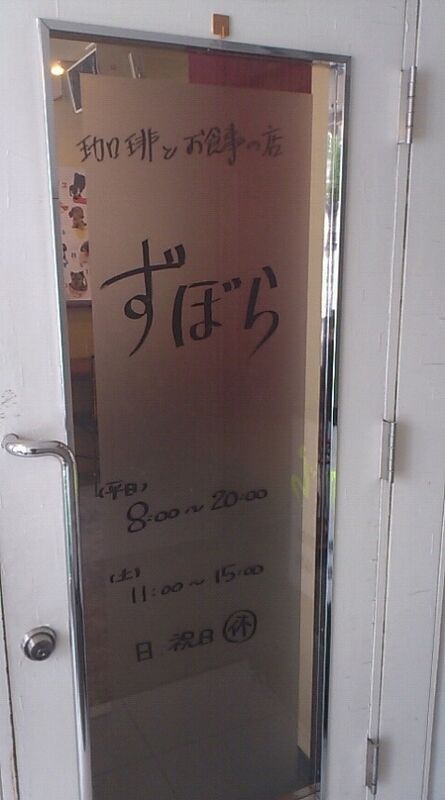 珈琲とお食事の店
ずぼら
(平日)
8:00~20:00
(土)
11:00~15:00
日 祝日 休